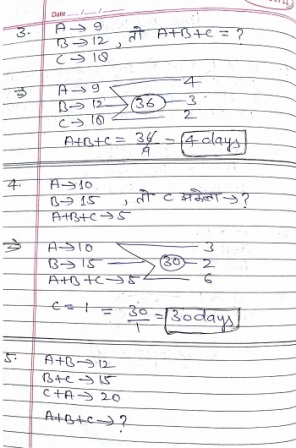 Date ..... / ..... / .....
3. A → 9
B → 12 , तो A+B+C = ?
C → 18
⇒ A → 9 4
B → 12 36 3
C → 18 2
A+B+C = 36/9 = 4 days
4. A → 10
B → 15 , तो C अकेला → ?
A+B+C → 5
⇒ A → 10 3
B → 15 30 2
A+B+C → 5 6
C = 1 = 30/1 = 30 days
5. A+B → 12
B+C → 15
C+A → 20
A+B+C → ?